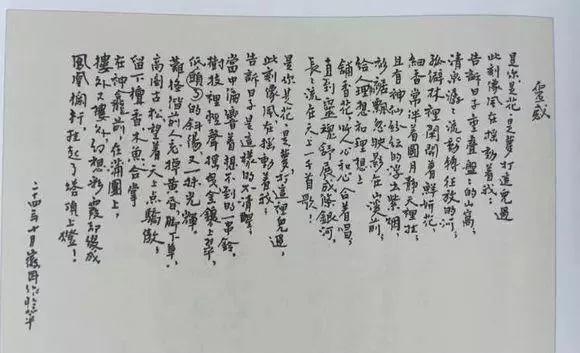 靈感
是你，是花，是夢，打這兒過，
此刻像風在搖動着我；
告訴日子重疊盤盤的山窩；
清泉潺潺流動轉狂放的河；
孤僻林裡閒開着鮮妍花，
細香常伴着圓月靜天裡挂；
且有神仙紛紜的浮出紫煙，
衫裾飄忽映影在山溪前；
給人的理想和理想上
鋪香花，叫人心和心合着唱；
直到靈魂舒展成條銀河，
長長流在天上一千首歌！
是你，是花，是夢，打這裡兒過，
此刻像風在搖動着我；
告訴日子是這樣的不清醒；
當中偏響着想不到的一串鈴，
樹枝裡輕聲搖曳；金鑲上翠，
低了頭的斜陽，又一抹光輝。
難怪階前人忘掉黃昏，脚下草，
高閣古松，望着天上點驕傲；
留下檀香，木魚，合掌
在神龕前，在蒲團上，
樓外又樓外，幻想彩霞却綴成
鳳凰欄杆，挂起了塔頂上燈！
二十四年十月 徽因作於北平